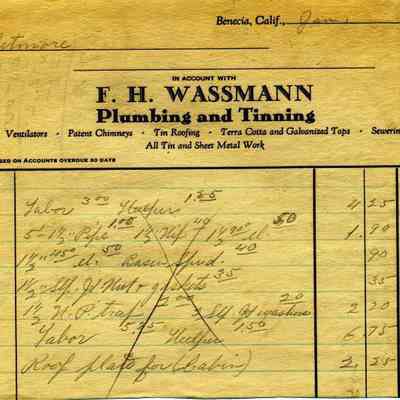 Benecia, Calif., Jan.
etmore
IN ACCOUNT WITH
F. H. WASSMANN
Plumbing and Tinning
Ventilators · Patent Chimneys · Tin Roofing · Terra Cotta and Galvanized Tops · Sewerin
All Tin and Sheet Metal Work
SED ON ACCOUNTS OVERDUE 30 DAYS
Labor 3.00 Helper 1.25 4 25
5ft 1½" Pipe 1.00 1½" Nip 40 1½ 90° el. 50 1.90
1½" 45° el. 50 Basin Spud. 40 90
1½" Slip Jt Nut & gaskets 35 35
1½ N.P. trap 2.00 3 Slip Jt washers 20 2 20
Labor 5.25 Helper 1.50 6 75
Roof plate for (cabin) 2. 25